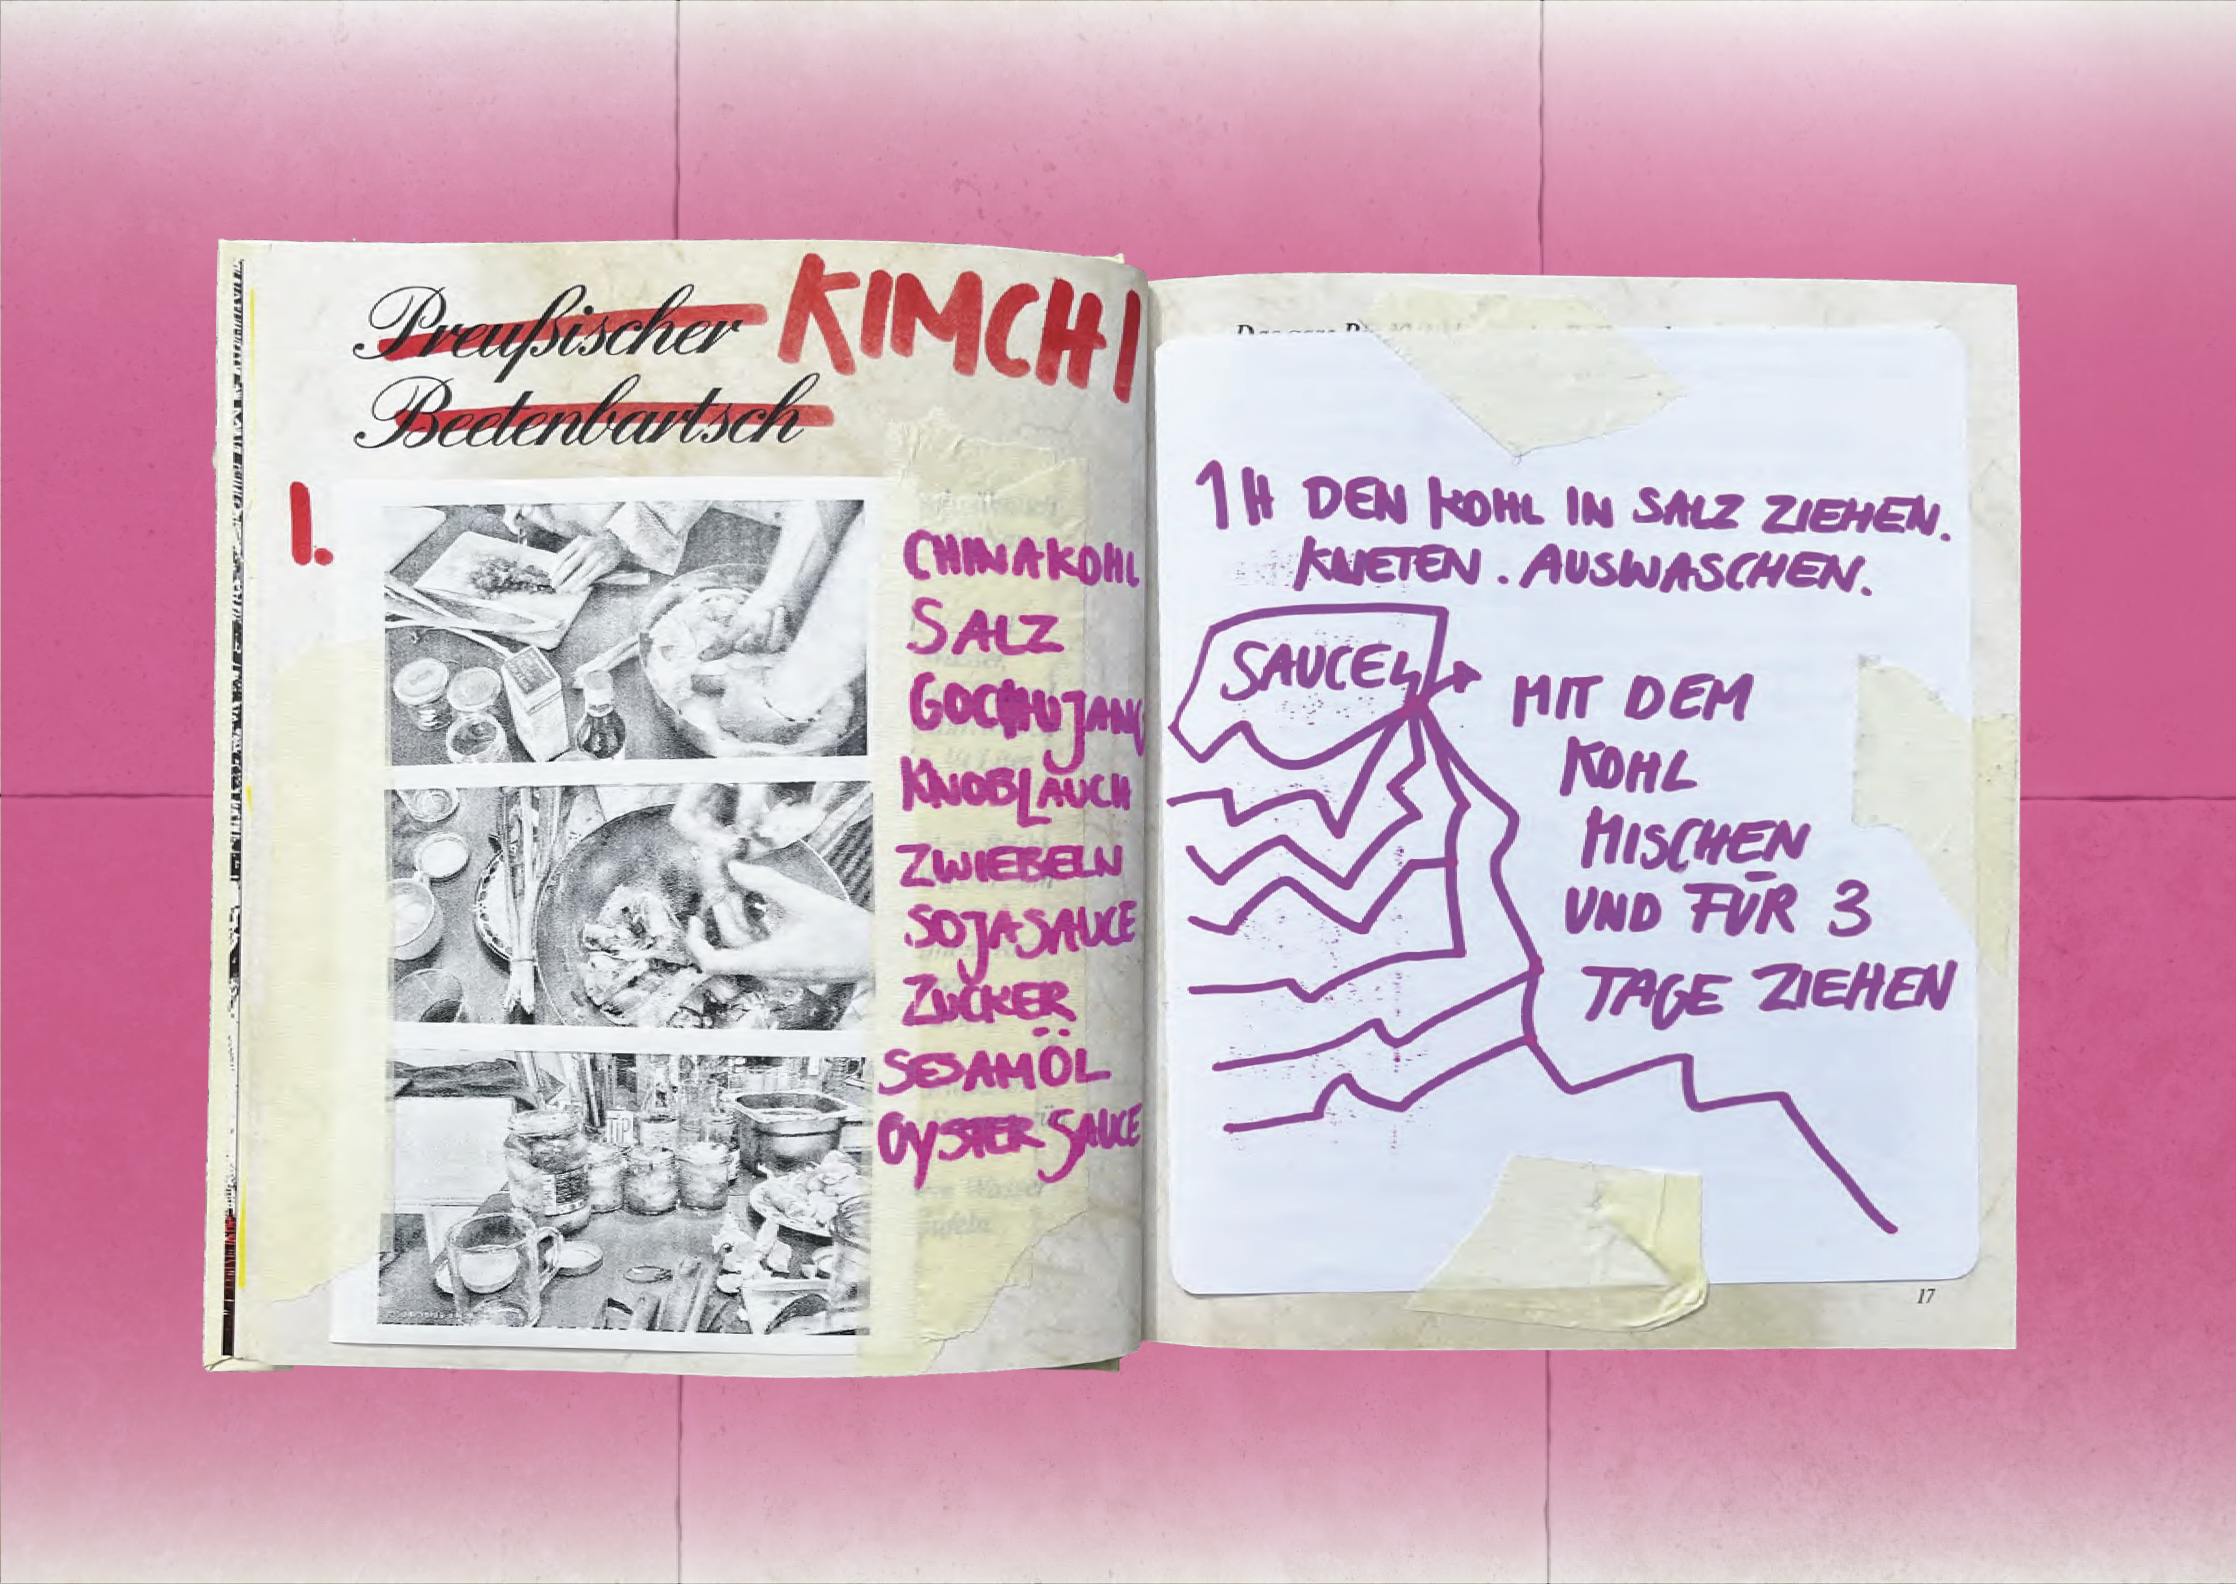 Preußischer
Beetenbartsch
KIMCHI
1.
CHINAKOHL
SALZ
GOCHUJANG
KNOBLAUCH
ZWIEBELN
SOJASAUCE
ZUCKER
SESAMÖL
OYSTER SAUCE
1H DEN KOHL IN SALZ ZIEHEN.
KNETEN. AUSWASCHEN.
SAUCE
MIT DEM
KOHL
MISCHEN
UND FÜR 3
TAGE ZIEHEN
17